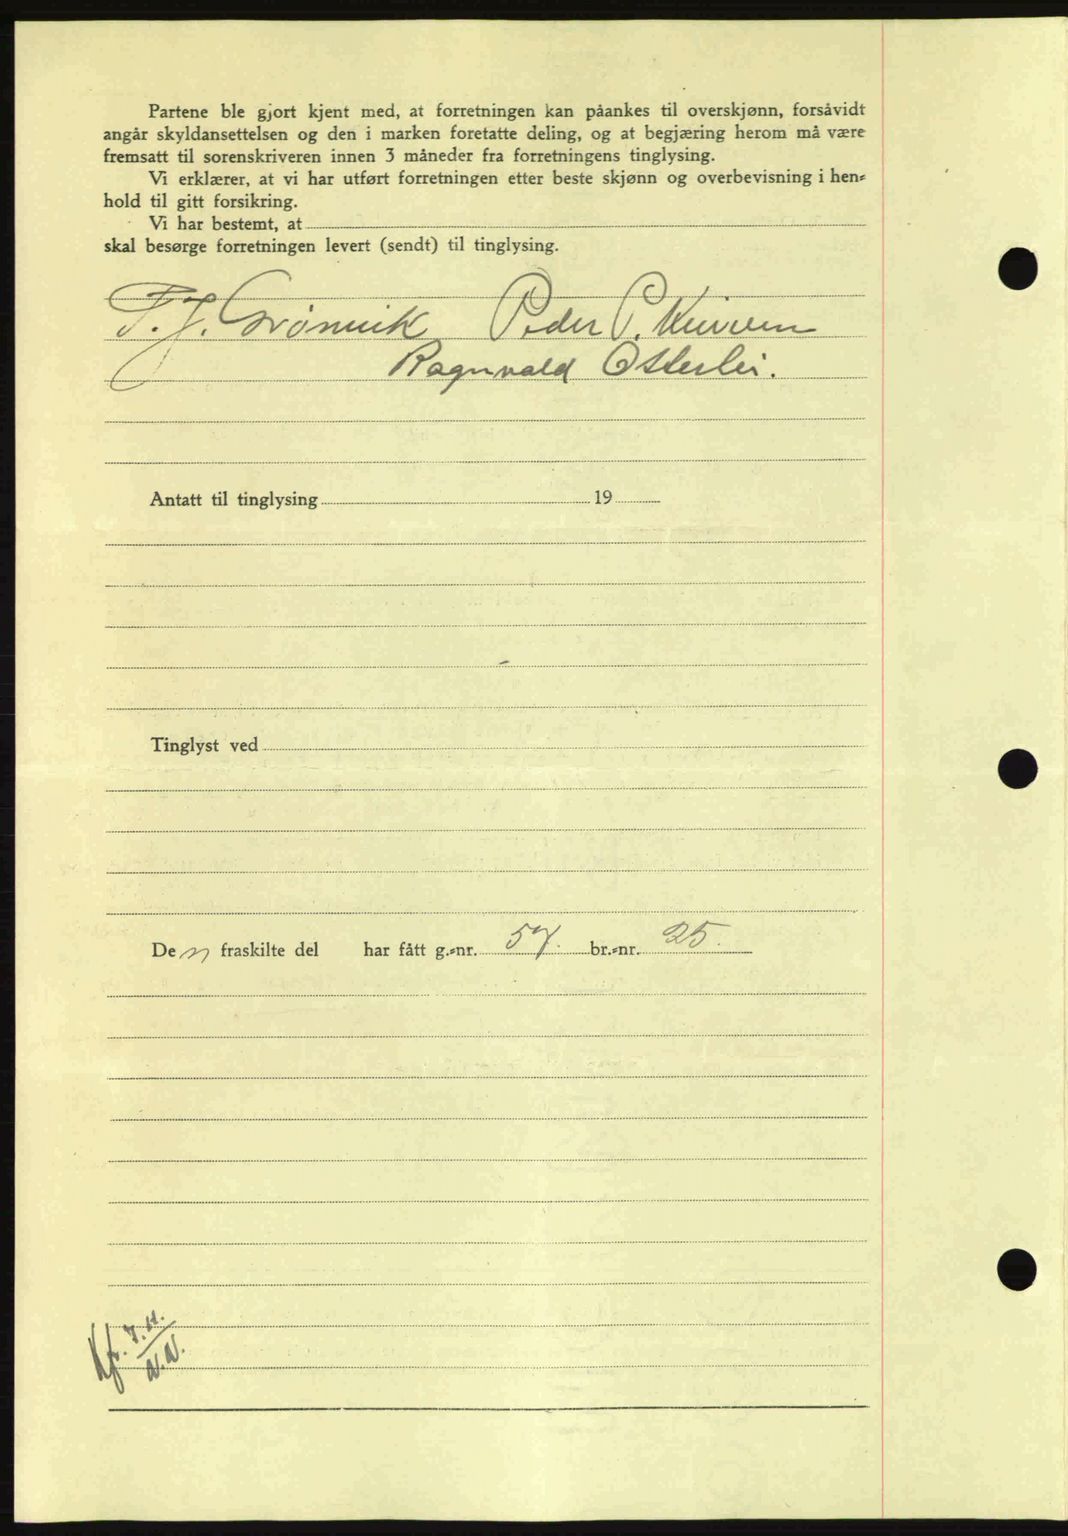 Partene ble gjort kjent med, at forretningen kan påankes til overskjønn, forsåvidt
angår skyldansettelsen og den i marken foretatte deling, og at begjæring herom må være
fremsatt til sorenskriveren innen 3 måneder fra forretningens tinglysing.
Vi erklærer, at vi har utført forretningen etter beste skjønn og overbevisning i hen-
hold til gitt forsikring.
Vi har bestemt, at
skal besørge forretningen levert (sendt) til tinglysing.
Peder P.
Ragnvald Otterlei.
Antatt til tinglysing 19
Tinglyst ved
De n fraskilte del har fått g.-nr. 57. br.-nr. 25.
Kfr.